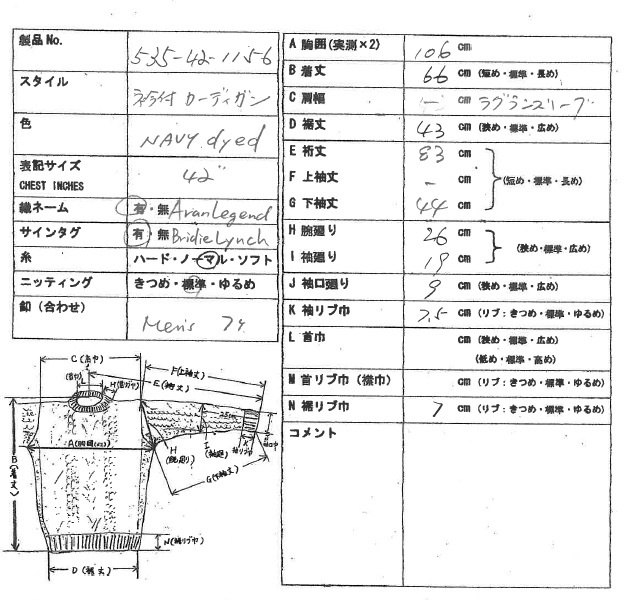 製品No. 535-42-1156
スタイル 衿付カーディガン
色 NAVY dyed
表記サイズ 42"
CHEST INCHES
織ネーム 有・無 AranLegend
サインタグ 有・無 Bridie Lynch
糸 ハード・ノーマル・ソフト
ニッティング きつめ・標準・ゆるめ
釦（合わせ） Men's 7ヶ
A 胸囲(実測×2) 106 cm
B 着丈 66 cm (短め・標準・長め)
C 肩幅 － cm ラグランスリーブ
D 裾丈 43 cm (狭め・標準・広め)
E 裄丈 83 cm
F 上袖丈 - cm (短め・標準・長め)
G 下袖丈 44 cm
H 腕廻り 26 cm
(狭め・標準・広め)
I 袖廻り 19 cm
J 袖口廻り 9 cm (狭め・標準・広め)
K 袖リブ巾 7.5 cm (リブ：きつめ・標準・ゆるめ)
L 首巾 cm (狭め・標準・広め)
(低め・標準・高め)
M 首リブ巾（襟巾） cm (リブ：きつめ・標準・ゆるめ)
N 裾リブ巾 7 cm (リブ：きつめ・標準・ゆるめ)
コメント
C(肩巾)
F(上袖丈)
E(裄丈)
L
B(着丈)
K
H
(腕廻り)
I
(袖廻)
G(下袖丈)
N(裾リブ巾)
D(裾丈)